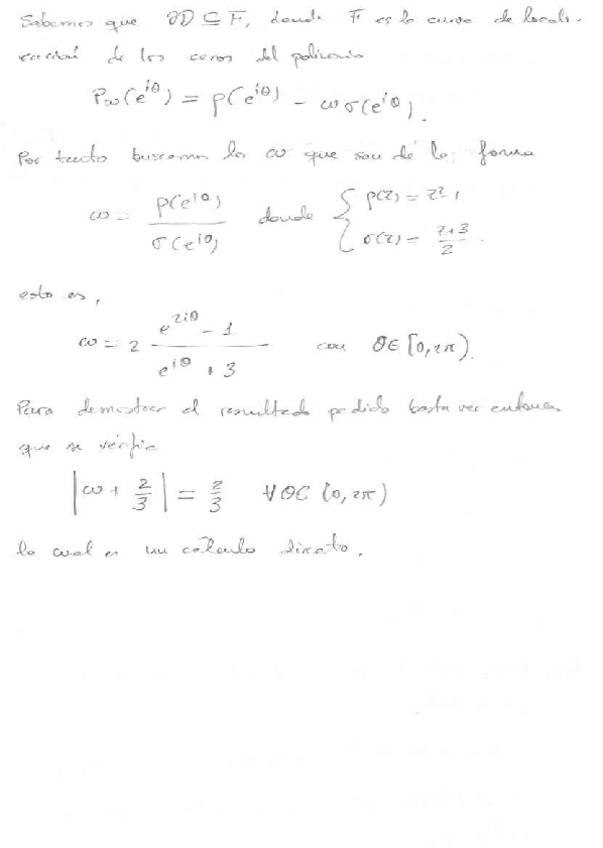 Sabemos que ∂D ⊆ F, donde F es la curva de locali-
zación de los ceros del polinomio
Pω(e^{iθ}) = ρ(e^{iθ}) - ω σ(e^{iθ}).
Por tanto buscamos los ω que son de la forma
ω = ρ(e^{iθ}) / σ(e^{iθ}) donde { ρ(z) = z² - 1
σ(z) = (z+3)/2 .
esto es,
ω = 2 (e^{2iθ} - 1) / (e^{iθ} + 3) con θ∈[0,2π).
Para demostrar el resultado pedido basta ver entonces
que se verifica
|ω + 2/3| = 2/3 ∀θ∈[0,2π)
lo cual es un cálculo directo.